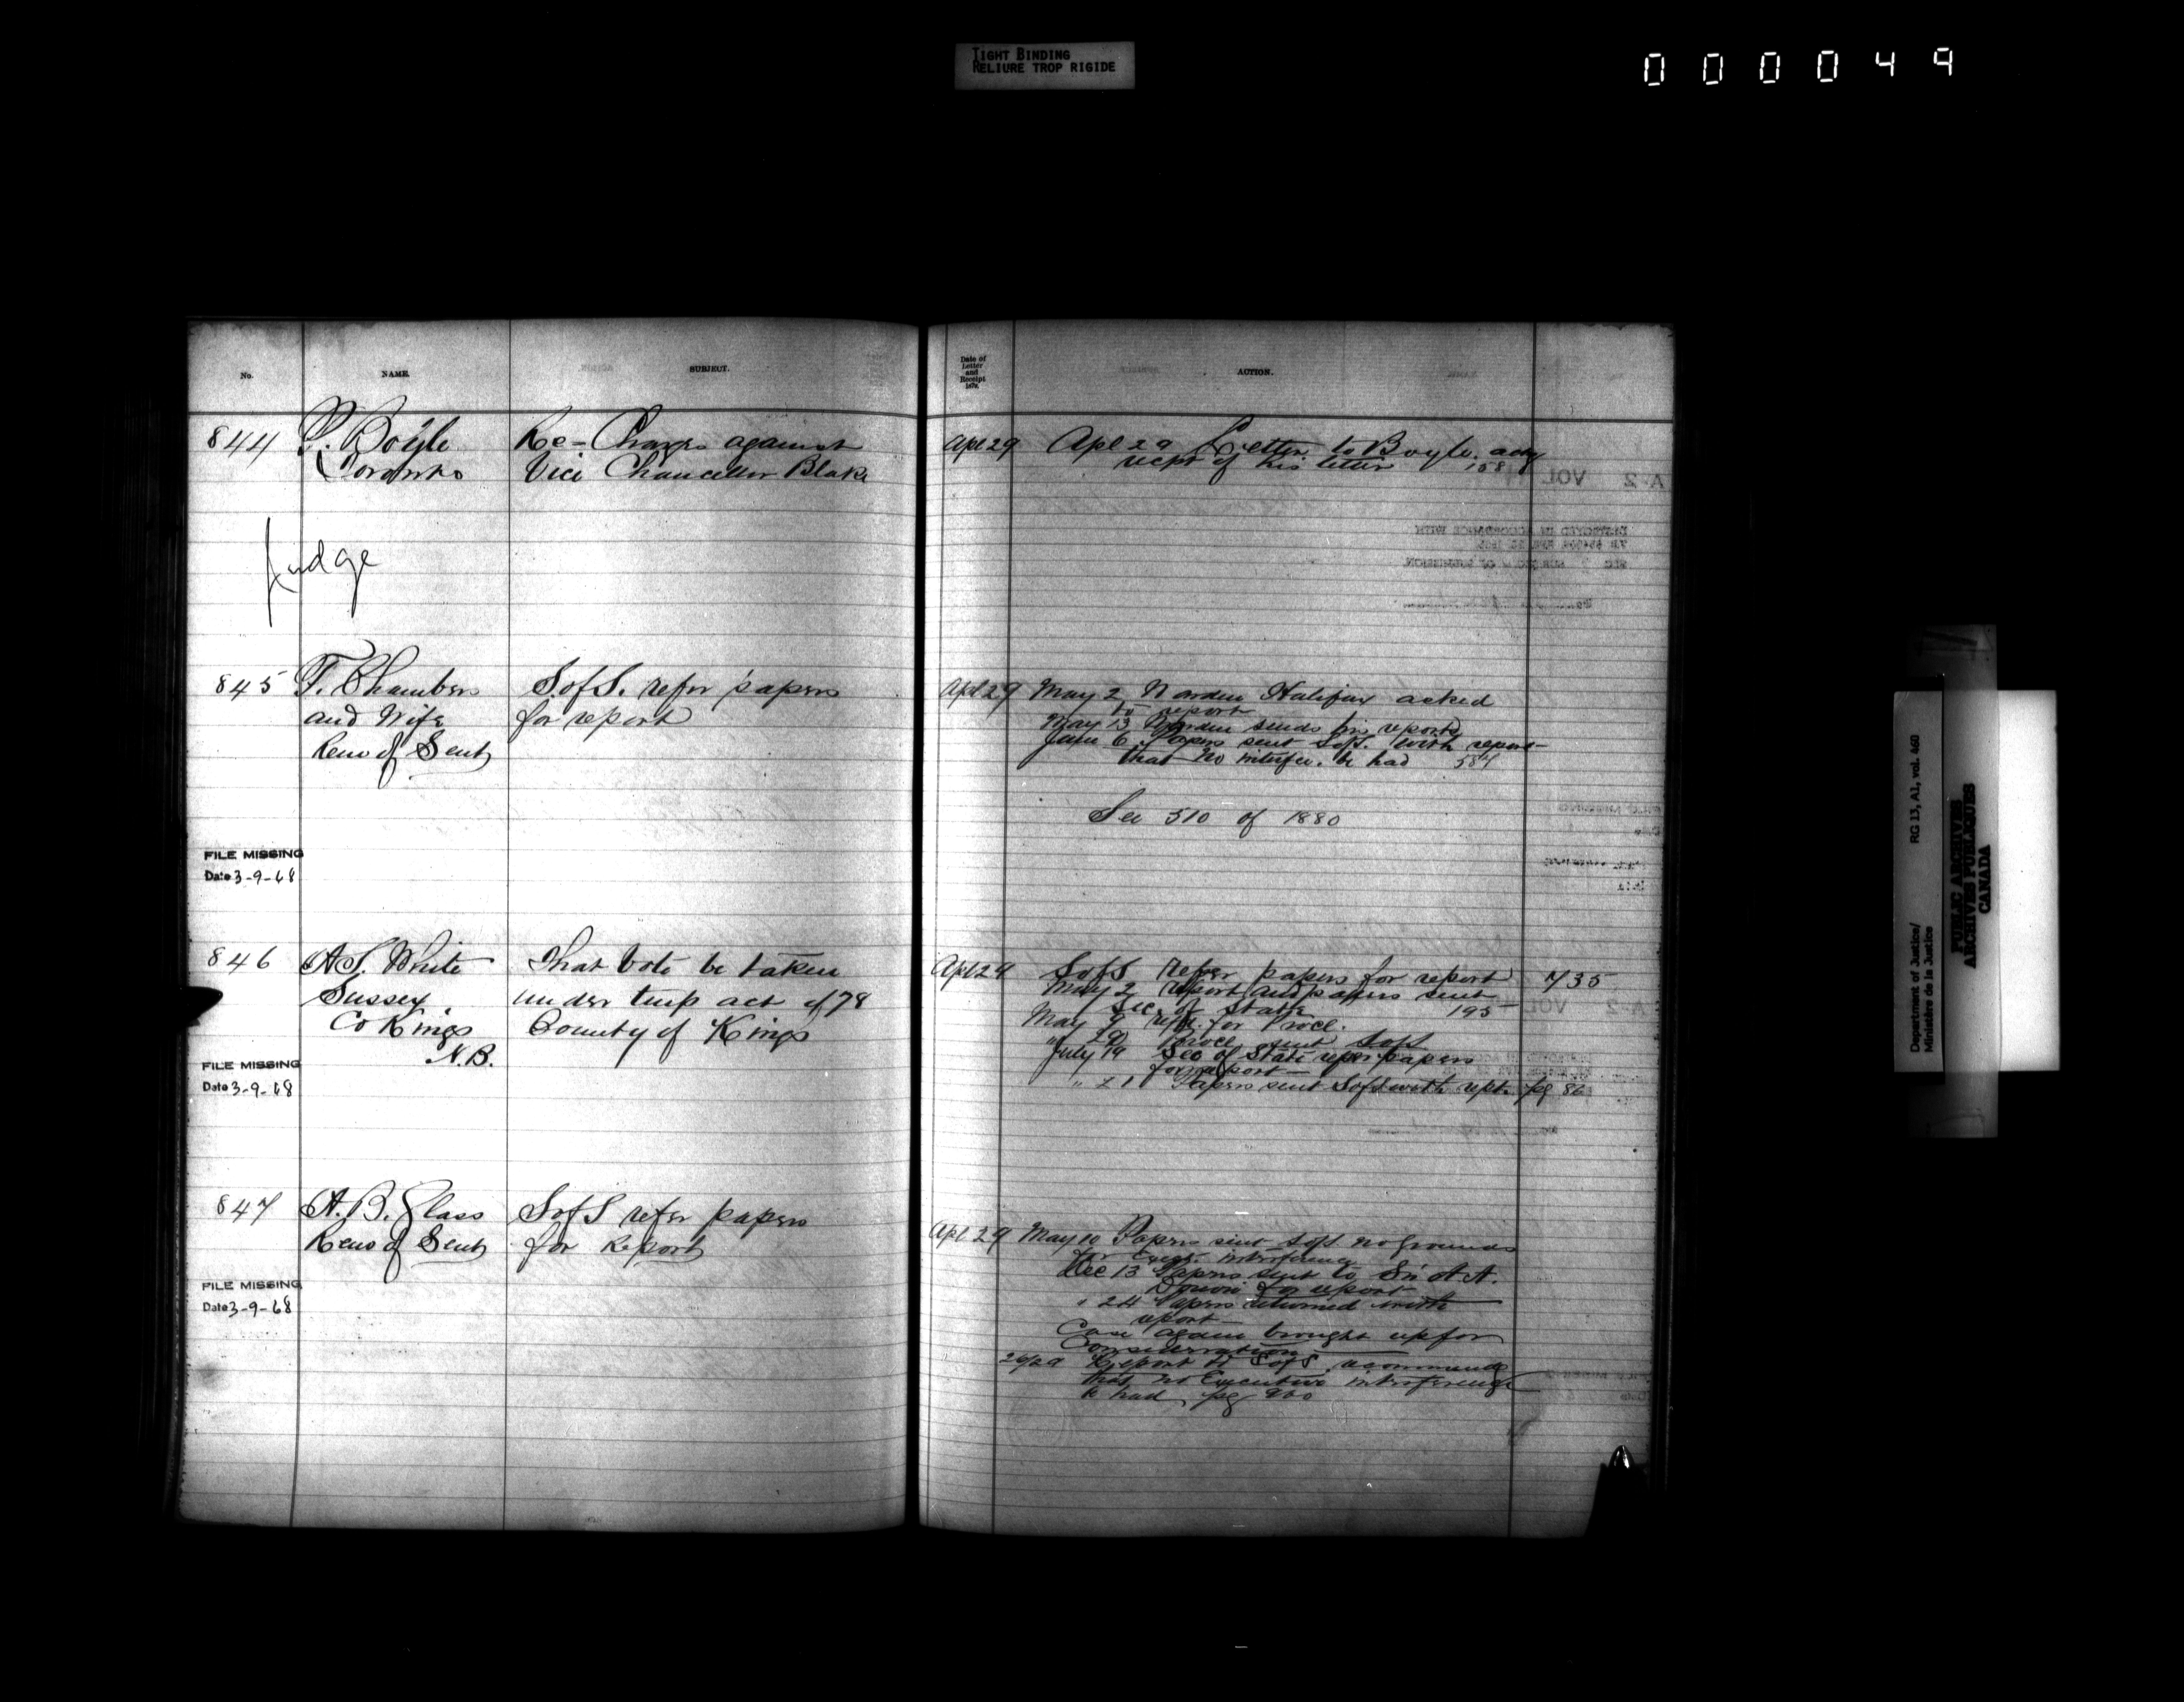 TIGHT BINDING
RELIURE TROP RIGIDE
000049
No.
NAME.
SUBJECT.
Date of
Letter
and
Receipt
187
ACTION.
844
P. Boyle
Toronto
Re- Charges against
Vice Chancellor Blake
Apl 29
Apl 29 Letter to Boyle ackg
recpt of his letter 158
Judge
845
F. Chambers
and Wife
Remo of Sent
S. of S. refer papers
for report
Apl 29
May 2 Warden Halifax asked
to report
May 13 Warden sends his reports
June 6 Papers sent SofS. with report
that no interfce. be had 584
See 510 of 1880
FILE MISSING
Date 3-9-68
846
A.S. White
Sussex
Co Kings
N.B.
That Vote be taken
under temp act of 78
County of Kings
Apl 29
SofS refer papers for report 735
May 2 report and papers sent
Sec. of State 195
May 9 for Procl.
" 29 Procl sent SofS
July 19 Sec of State refer papers
for report
" 21 Papers sent SofS with rept. pg 86
FILE MISSING
Date 3-9-68
847
A. B. Glass
Remo of Sent
SofS refer papers
for Report
Apl 29
May 10 Papers sent SofS no grounds
for Exec. interference
Dec 13 Papers sent to Sir A A.
Dorion for report
" 24 Papers returned with
report
Case again brought up for
Consideration
Report to SofS recommends
that no Executive interference
be had pg 960
FILE MISSING
Date 3-9-68
Department of Justice/
Ministère de la Justice
RG 13, A1, vol. 460
PUBLIC ARCHIVES
ARCHIVES PUBLIQUES
CANADA